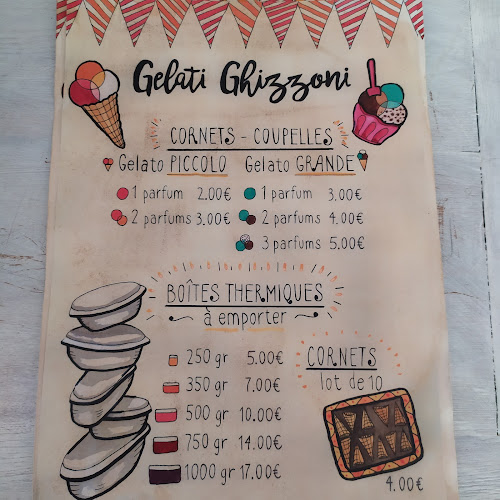 Gelati Ghizzoni
CORNETS - COUPELLES
Gelato PICCOLO Gelato GRANDE
1 parfum 2.00€ 1 parfum 3.00€
2 parfums 3.00€ 2 parfums 4.00€
3 parfums 5.00€
BOÎTES THERMIQUES
à emporter
250 gr 5.00€
350 gr 7.00€
500 gr 10.00€
750 gr 14.00€
1000 gr 17.00€
CORNETS
lot de 10
4.00€